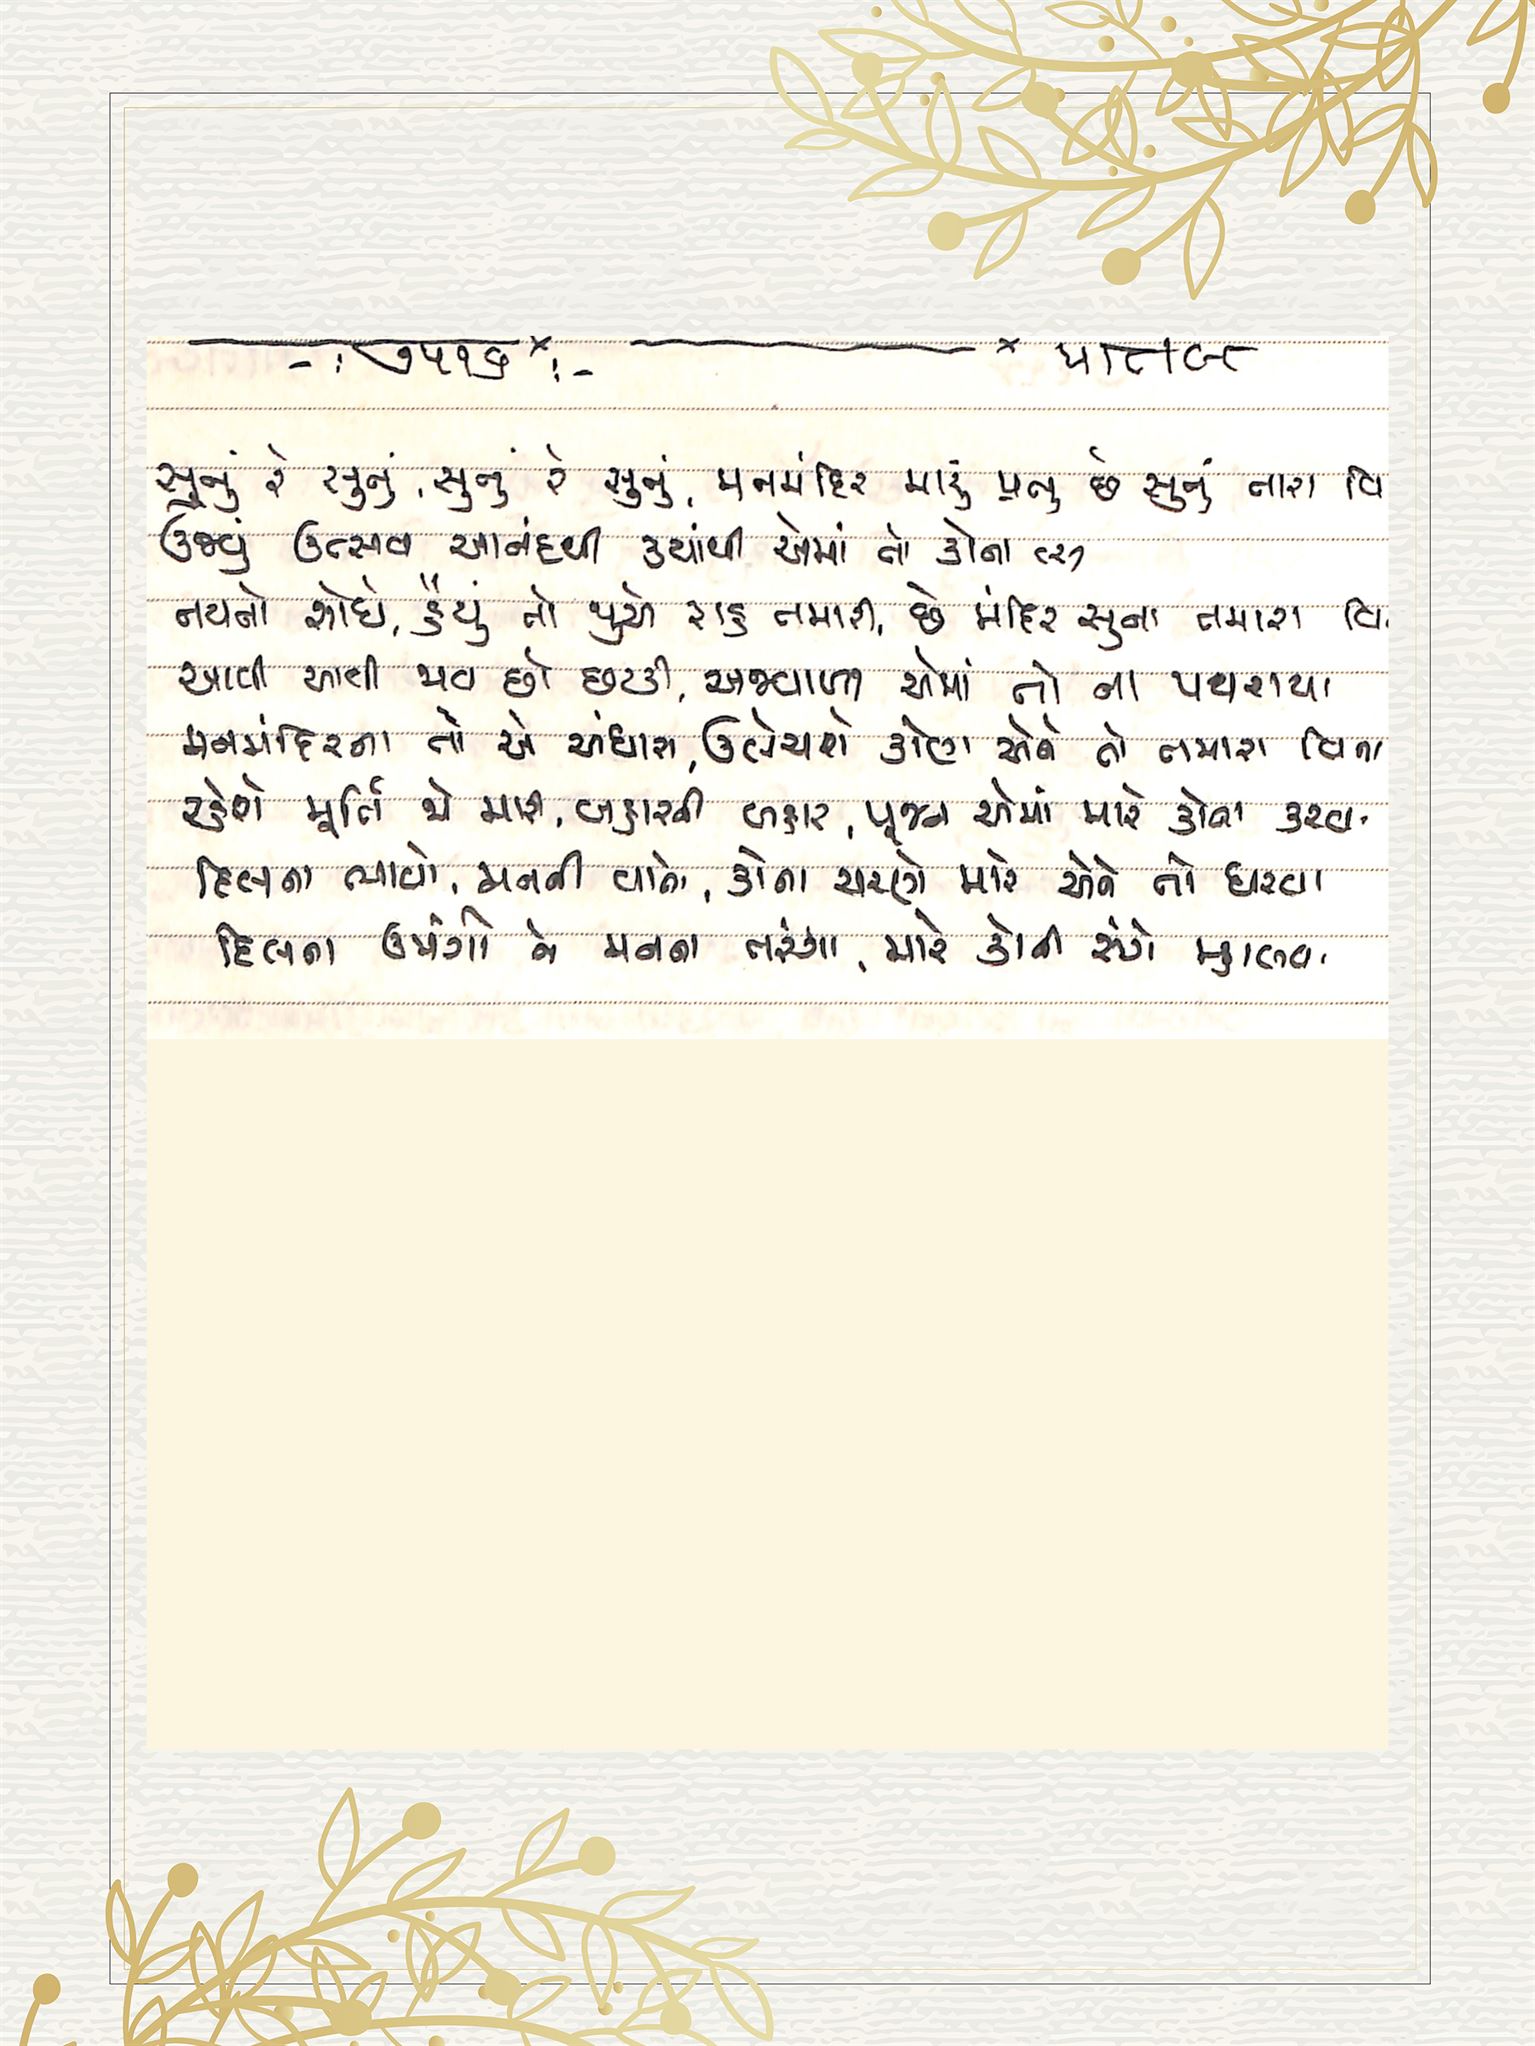 -: ૭૫૧૭ :-
સુનું રે સુનું, સુનું રે સુનું, મનમંદિર મારું પ્રભુ છે સુનું તારા વિ
ઉજવું ઉત્સવ આનંદથી ક્યાંથી એમાં તો કોના
નયનો શોધે, હૈયું તો જુએ રાહ તમારી, છે મંદિર સુના તમારા વિ
આવી આવી ભવ છો છટકી, અજવાળા એમાં તો ના પથરાયા
મનમંદિરના તો એ અંધારા, ઉલેચશે કોણ એને તો તમારા વિના
રહેશે મૂર્તિ જો મારી, બહારની બહાર, પૂજન એમાં મારે કોના કરવા
દિલના ભાવો, મનની વાતો, કોના ચરણે મારે એને તો ધરવા
દિલના ઉમંગો ને મનના તરંગો, મારે કોની સંગે